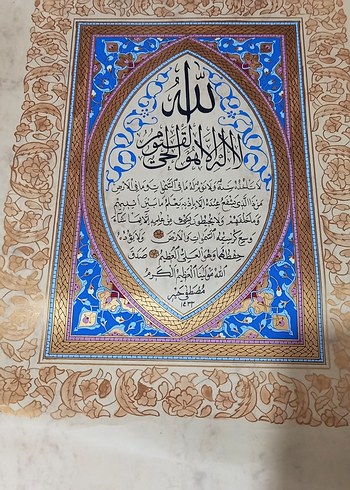 الله
لا إله إلا هو الحي القيوم
لا تأخذه سنة ولا نوم له ما في السموات وما في الأرض
من ذا الذي يشفع عنده إلا بإذنه يعلم ما بين أيديهم
وما خلفهم ولا يحيطون بشيء من علمه إلا بما شاء
وسع كرسيه السموات والأرض ولا يؤده
حفظهما وهو العلي العظيم صدق
الله مولانا العظيم الكريم
مصطفى